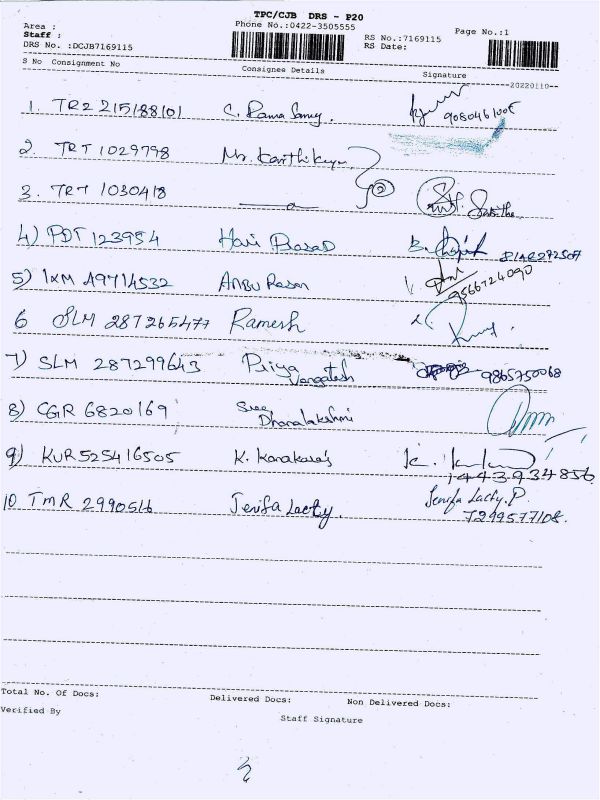 TPC/CJB DRS - P20
Area :
Phone No.:0422-3505555
Page No.:1
Staff :
RS No.:7169115
DRS No. :DCJB7169115
RS Date:
S No Consignment No Consignee Details Signature
20220110
1. TRZ 215188101 C. Rama Samy.
9080461005
2. TRT 1029798 Mr. Karthikeyan
3. TRT 1030418
4) PDT 123954 Hari Prasad
5) IXM 49714532 Anbu Rasan
9566724090
6 SLM 287265477 Ramesh
7) SLM 287299643 Priya Vengatesh 9865750068
8) CGR 6820169 Sree Dhanalakshmi
9) KUR 525416505 K. Kanakaraj
9443934856
10 TMR 2990516 Jenifa Lacty. Jenifa Lacty.P
7299577108.
Total No. Of Docs: Delivered Docs: Non Delivered Docs:
Verified By Staff Signature